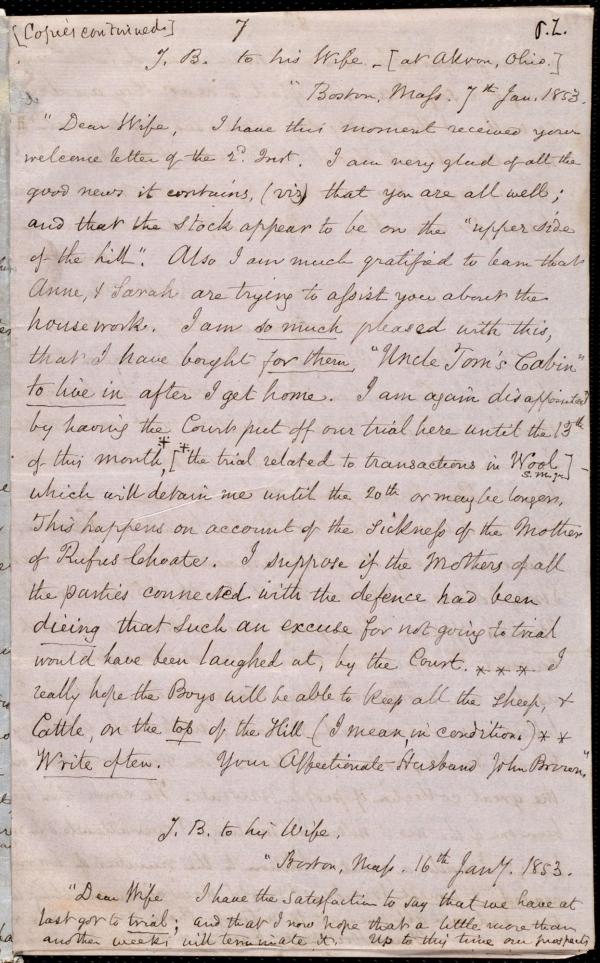 [Copies continued.] 7 S.L.
J. B. to his Wife - [at Akron, Ohio.]
"Boston, Mass. 7th Jan. 1853.
"Dear Wife, I have this moment received your
welcome letter of the 2d. Inst. I am very glad of all the
good news it contains, (viz) that you are all well;
and that the stock appear to be on the "upper side
of the hill". Also I am much gratified to learn that
Anne, & Sarah are trying to assist you about the
housework. I am so much pleased with this,
that I have bought for them, "Uncle Tom's Cabin"
to live in after I get home. I am again disappointed
by having the Court put off our trial here until the 13th
of this month, * [* the trial related to transactions in Wool]
S. M. jr. -
which will detain me until the 20th or may be longer.
This happens on account of the Sickness of the Mother
of Rufus Choate. I suppose if the Mothers of all
the parties connected with the defence had been
dieing that such an excuse for not going to trial
would have been laughed at, by the Court. * * * * I
really hope the Boys will be able to keep all the Sheep, &
Cattle, on the top of the Hill (I mean, in condition.) * *
Write often. Your Affectionate Husband John Brown"
J. B. to his Wife.
"Boston, Mass. 16th Jany. 1853.
"Dear Wife I have the satisfaction to say that we have at
last got to trial; and that I now hope that a little more than
another weeks will terminate it. Up to this time our prospects